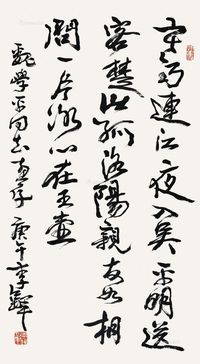 寒雨連江夜入吳平明送
客楚山孤洛陽親友如相
問一片冰心在玉壺
學正同志查存庚午李鐸